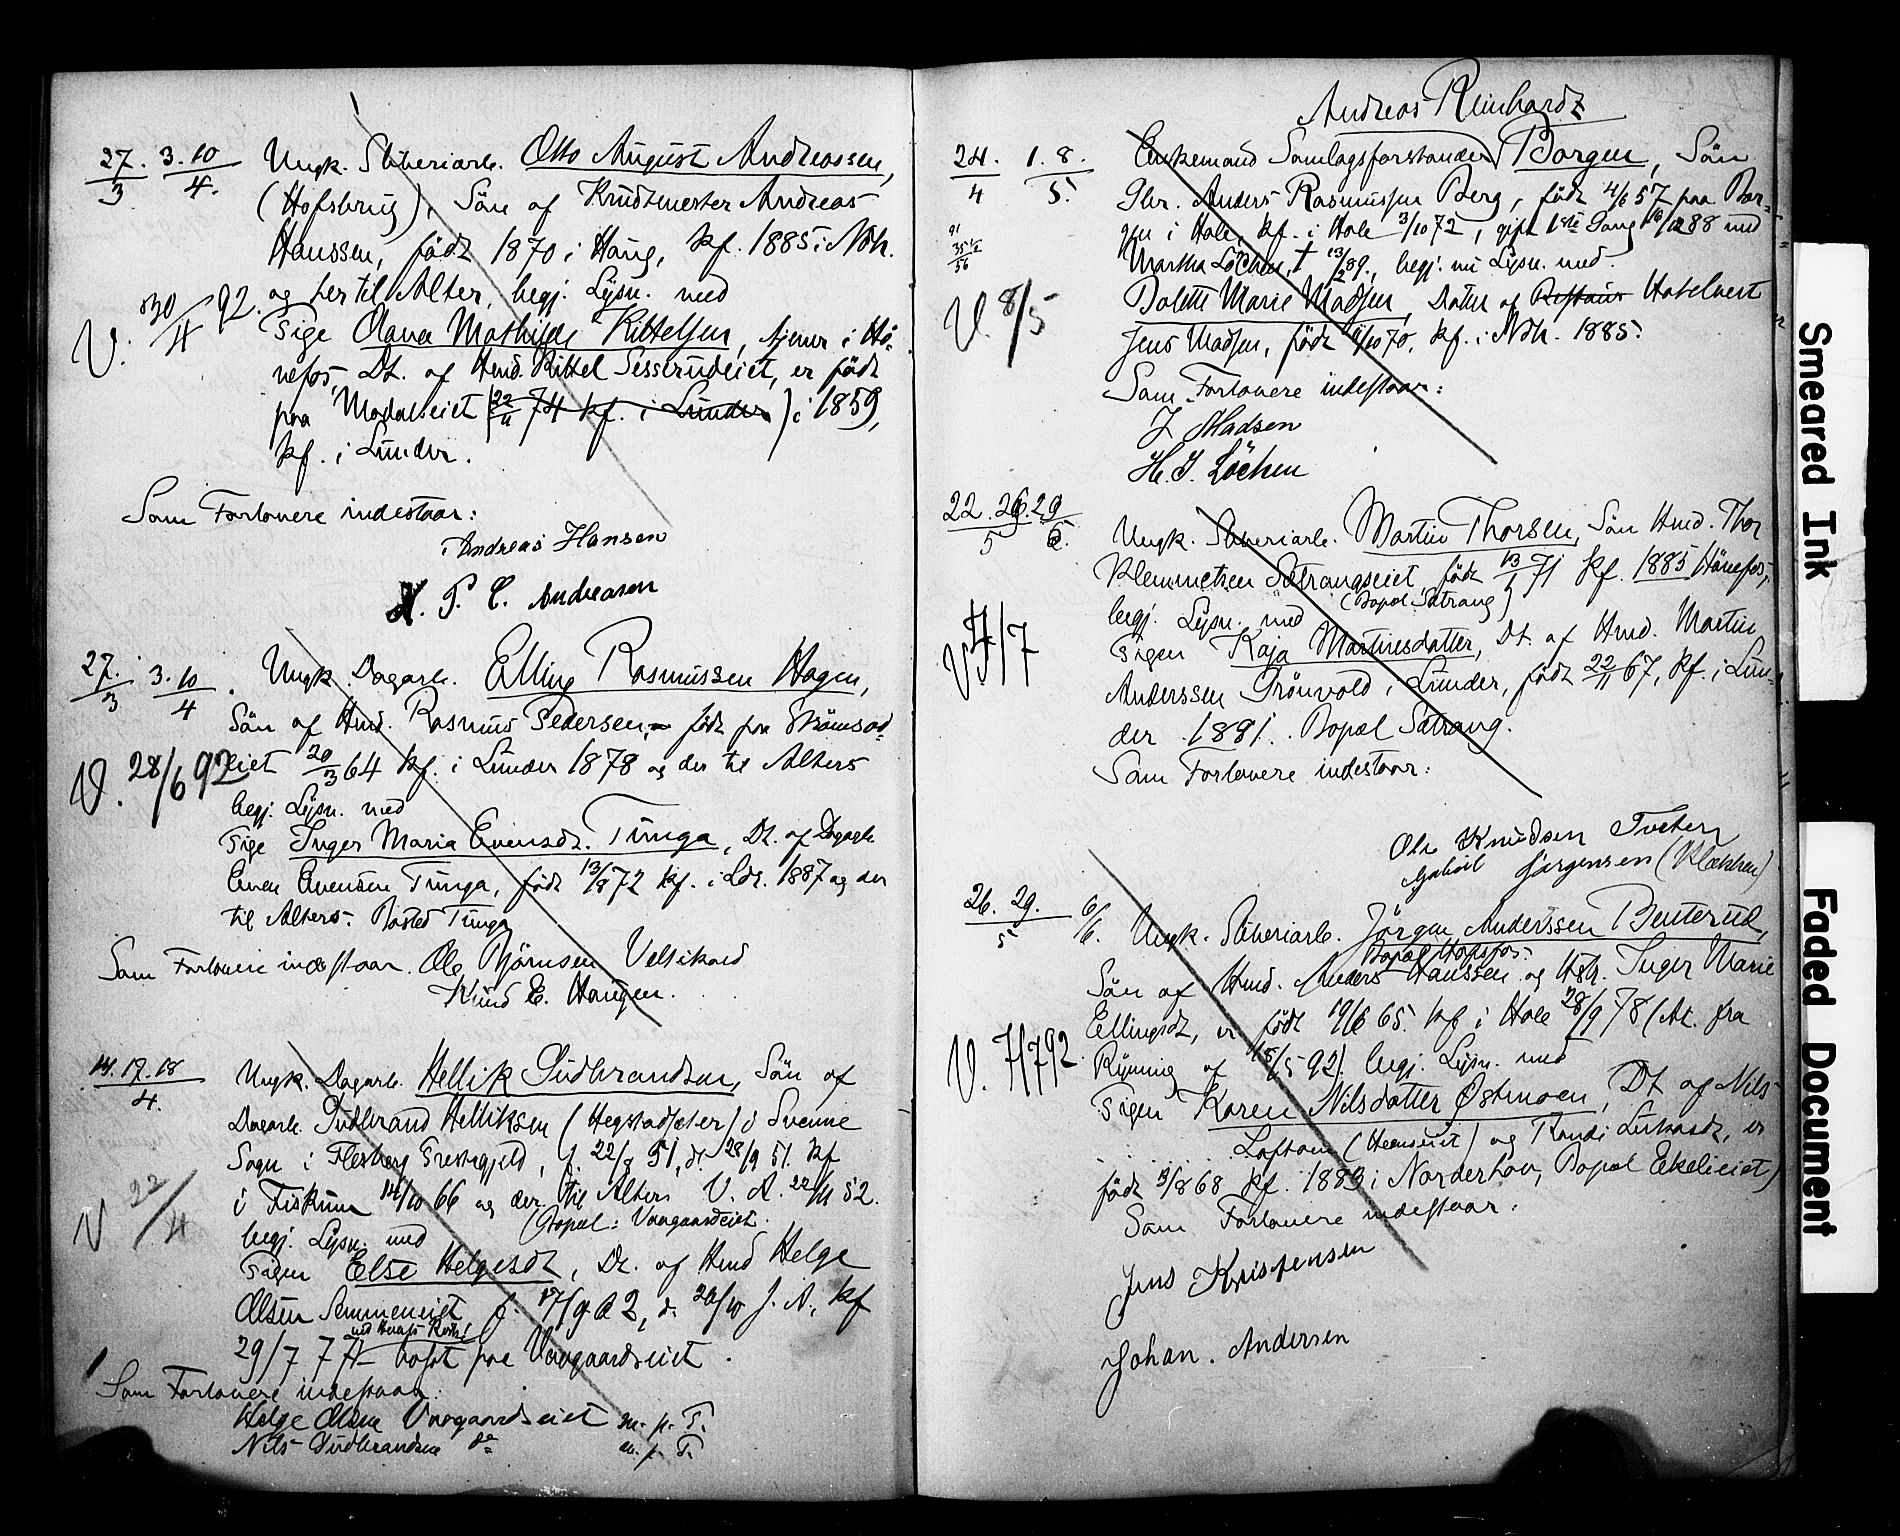 27. 3. 10 Ungk. Sliberiarb. Otto August Andreassen,
3 4. (Hofsbrug), Sön af Krudtmester Andreas
Hanssen, födt 1870 i Haug, kf. 1885 i Ndh.
og her til Alter, begj. Lysn. med
V. 30/4 92. Pige Olava Mathilde Kittelsen, tjener i Hö-
nefos, Dt. af Hmd. Kittel Sesserudeiet, er födt
paa Modalseiet (22/11 74 kf. i Lunder) i 1859,
kf. i Lunder.
Som Forlovere indestaar:
Andreas Hansen
H. P. C. Andreasen
27. 3. 10 Ungk. Dagarb. Elling Rasmussen Hagen,
3 4 Sön af Hmd. Rasmus Pedersen, födt paa Strömsod-
V. 28/6 92 eiet 20/3 64 kf. i Lunder 1878 og der til Alters
begj. Lysn. med
Pige Inger Maria Evensdt. Tunga, Dt. af Dagarb.
Even Evensen Tunga, födt 13/8 72 kf. i Ldr. 1887 og der
til Alters. Bosted Tunga
Som Forlovere indestaar. Ole Björnsen Veltikold
Knud E. Haugen.
14. 17. 18 Ungk. Dagarb. Hellik Gudbrandsen, Sön af
4. Dagarb. Gudbrand Helliksen (Hegstadsæter) i Svenne
Sogn i Flesberg Prestegjeld, f. 22/8 51, d. 28/9 51. kf
i Fiskum 14/10 66 og der til Alters V. A. 22/11 52.
(Bopæl: Vaagaardseiet.
V 22/4 begj. Lysn. med
Pigen Else Helgesdt, Dt. af Hmd Helge
Olsen Semmeneiet f. 17/9 62, d. 26/10 s. A., kf
29/7 77 bosat paa Vaagaardseiet.
Som Forlovere indestaar:
Helge Olsen Vaagaardseiet m. p. P.
Nils Gudbrandsen do m. p. P.
Andreas Reinhardt
24. 1. 8. Enkemand Samlagsforstander Borgen, Sön
4 5. Gbr. Anders Rasmussen Berg, födt 4/6 57 paa Bor-
gen i Hole, kf. i Hole 3/10 72, gift 1ste Gang 16/10 88 med
Martha Löchen, † 13/2 89., begj. nu Lysn. med
V. 8/5 Bolette Marie Madsen, Datter af Restaur Hotelvert
Jens Madsen, födt 1/10 70, kf. i Ndh. 1885.
Som Forlovere indestaar:
J Madsen
H. J. Löchen
22. 26. 29 Ungk. Sliberiarb. Martin Thorsen, Sön Hmd. Thor
5 Klemmetsen Sætrangseiet, födt 13/1 71 kf. 1885 Hönefos,
(Bopæl Sætrang)
begj. Lysn. med
V 4/7 Pigen Kaja Martinesdatter, Dt. af Hmd. Martin
Anderssen Grönvold i Lunder, födt 22/11 67, kf. i Lun-
der 1881. Bopæl Sætrang.
Som Forlovere indestaar:
Ole Knudsen Tveten
Gabriel Jörgensen (Klækken)
26. 29. 6/6. Ungk. Sliberiarb. Jörgen Anderssen Benterud,
5 Bopæl Hofsfos.
Sön af Hmd. Anders Hanssen og Hstr. Inger Marie
Ellingsdt, er födt 19/6 65. kf i Hole 28/9 78 (At. fra
V. 7/7 92. Rÿning af 15/5 92). begj. Lysn. med
Pigen Karen Nilsdatter Østmoen, Dt af Nils
Loftsen (Henseiet) og Randi Larsdt, er
födt 9/8 68 kf. 1883 i Norderhov, Bopæl Ekelieiet)
Som Forlovere indestaar:
Jens Kristensen
Johan. Andersen
Smeared Ink
Faded Document